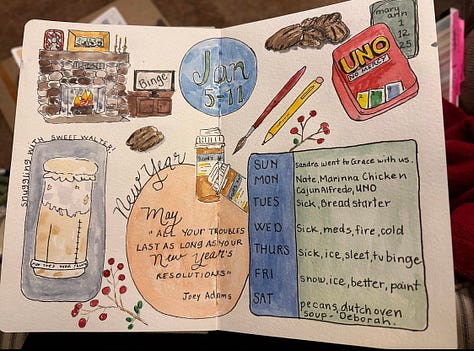 mary
ann
1
12
25
Binge
Jan
5-11
UNO
NO MERCY
SNUGGLING WITH SWEET WALTER!
New Year
May
"ALL YOUR TROUBLES
LAST AS LONG AS YOUR
New Year's
RESOLUTIONS"
Joey Adams
SUN Sandra went to Grace with us.
MON Nate, Marinna Chicken
Cajun Alfredo, UNO
TUES Sick, Bread starter
WED Sick, meds, fire, cold
THURS Sick, ice, sleet, tv binge
FRI snow, ice, better, paint
SAT pecans, dutch oven
soup - Deborah.